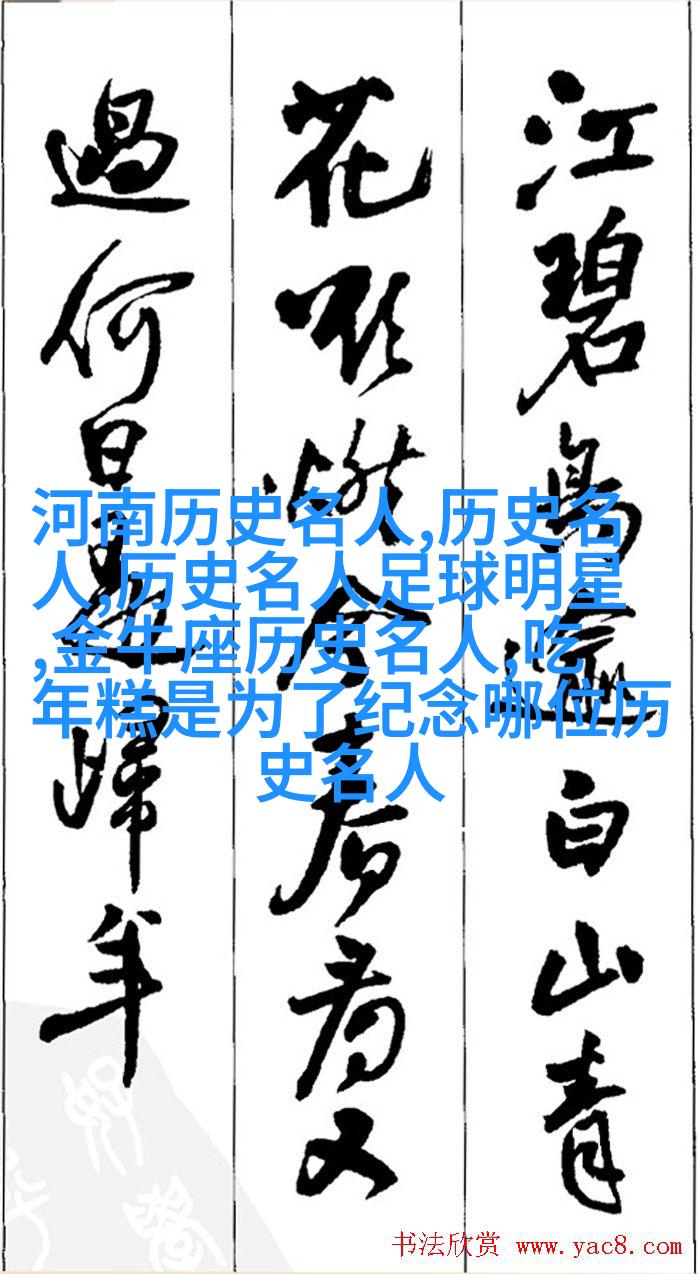 江碧鳥逾白山青
花欲燃今春看又
過何日是歸年
河南历史名人,历史名
人,历史名人足球明星
,金牛座历史名人,吃
年糕是为了纪念哪位历
史名人
书法欣赏 www.yac8.com